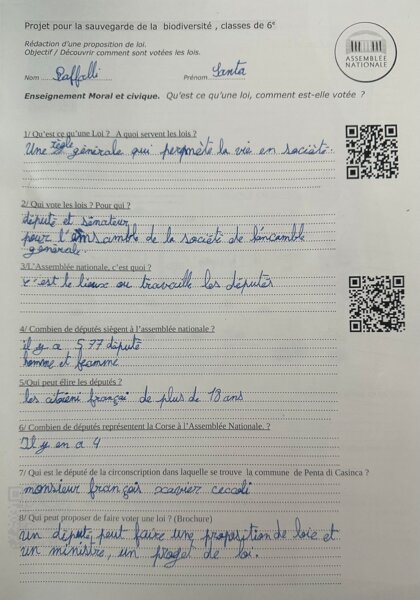 Projet pour la sauvegarde de la biodiversité , classes de 6e
Rédaction d'une proposition de loi.
Objectif / Découvrir comment sont votées les lois.
ASSEMBLÉE
NATIONALE
Nom Raffalli Prénom Santa
Enseignement Moral et civique. Qu'est-ce qu'une loi, comment est-elle votée ?
1/ Qu'est ce qu'une Loi ? A quoi servent les lois ?
Une règle générale qui permète la vie en socièté.
2/ Qui vote les lois ? Pour qui ?
députè et sénateur
pour l'ensamble de la société de
générale.
3/L'Assemblée nationale, c'est quoi ?
c'est le lieux ou travaille les députés
4/ Combien de députés siègent à l'assemblée nationale ?
il y a 577 députè
homme et feamme
5/Qui peut élire les députés ?
les citoieni françai de plus de 18 ans
6/ Combien de députés représentent la Corse à l'Assemblée Nationale. ?
Il y en a 4
7/ Qui est le député de la circonscription dans laquelle se trouve la commune de Penta di Casinca ?
monsieur françois xavier ceccoli
8/ Qui peut proposer de faire voter une loi ? (Brochure)
un député peut faire une proposition de loie et
un ministre, un projet de loi.